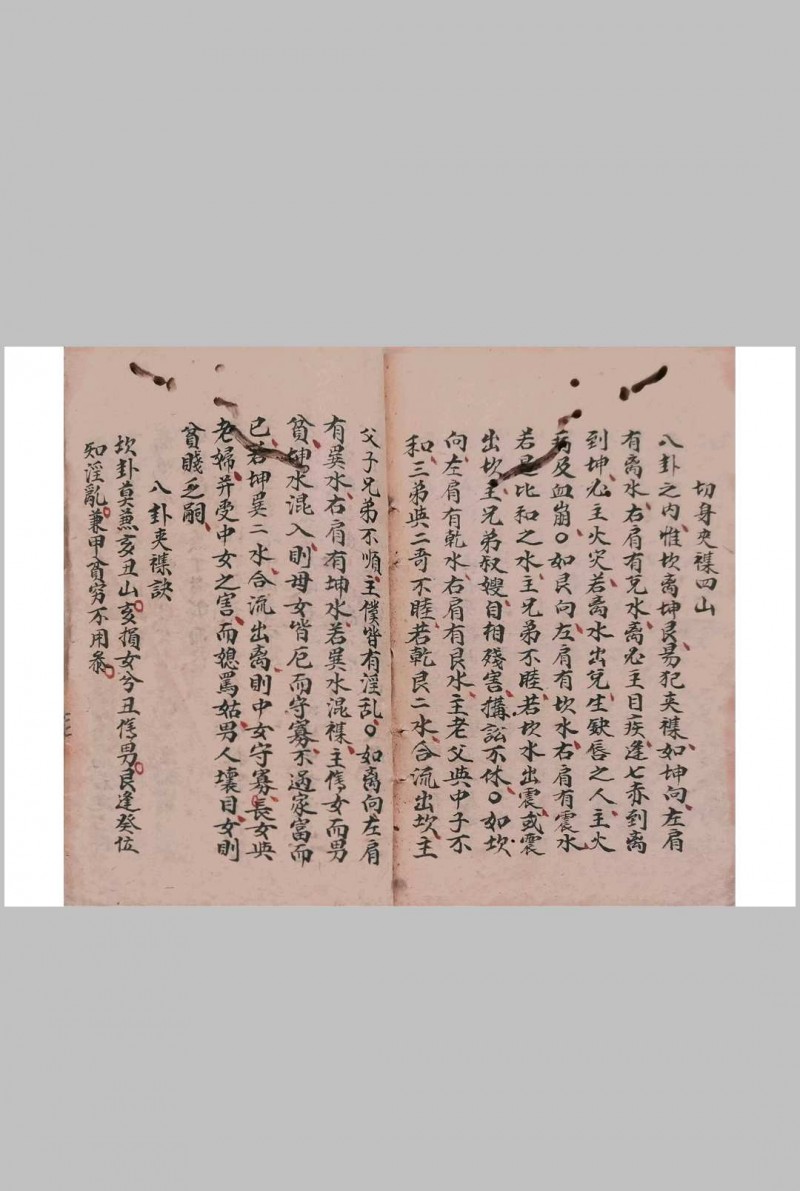 切身夾襍四山
八卦之內惟坎离坤艮易犯夹襍如坤向左肩
有离水右肩有兑水离必主目疾逢七赤到离
到坤必主火灾若离水出兑生缺唇之人主火
病及血崩〇如艮向左肩有坎水右肩有震水
若是比和之水主兄弟不睦若坎水出震或震
出坎主兄弟叔嫂自相殘害搆訟不休〇如坎
向左肩有乾水右肩有艮水主老父與中子不
和三弟與二哥不睦若乾艮二水合流出坎主
父子兄弟不順主僕皆有淫乱〇如离向左肩
有巽水右肩有坤水若巽水混襍主隽女而男
貧坤水混入則母女皆厄而守寡不過家富而
已若坤巽二水合流出离則中女守寡長女與
老婦并受中女之害而媳罵姑男人壞目女則
貧賤乏嗣
八卦夹襍訣
坎卦莫兼亥丑山亥損女兮丑隽男艮逢癸位
知淫亂兼甲貧穷不用叅